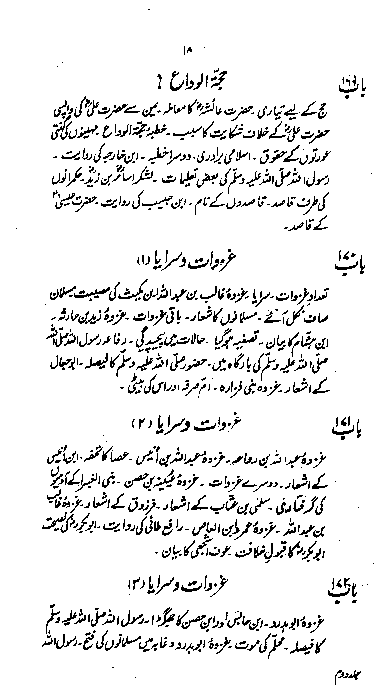 ۱۸
باب ۱۶۹
حجۃ الوداع
حج کے لیے تیاری۔ حضرت عائشہؓ کا معاملہ۔ یمن سے حضرت علیؓ کی واپسی
حضرت علیؓ کے خلاف شکایت کا سبب۔ خطبۂ حجۃ الوداع۔ مہینوں کی گنتی
عورتوں کے حقوق۔ اسلامی برادری۔ دوسرا خطبہ۔ ابن خارجہ کی روایت۔
رسول اللہ صلی اللہ علیہ وسلم کی بعض تعلیمات۔ لشکر اسامہؓ بن زیدؓ۔ حکمرانوں
کی طرف قاصد۔ قاصدوں کے نام۔ ابن حبیب کی روایت۔ حضرت عیسیٰؑ
کے قاصد۔
باب ۱۷۰
غزوات و سرایا (۱)
تعداد غزوات۔ سرایا۔ غزوۂ غالب بن عبداللہ ابن کی مصیبت مسلمان
صاف نکل آئے۔ مسلمانوں کا شعار۔ باقی غزوات۔ غزوۂ زید بن حارثہ۔
ابن ہشام کا بیان۔ تصفیہ ہو گیا۔ حالات میں پیچیدگی۔ رفاعہ رسول اللہ صلی اللہ
صلی اللہ علیہ وسلم کی بارگاہ میں۔ حضور صلی اللہ علیہ وسلم کا فیصلہ۔ ابوجعال
کے اشعار۔ غزوۂ بنی فزارہ۔ ام قرفہ اور اس کی بیٹی۔
باب ۱۷۱
غزوات و سرایا (۲)
غزوۂ عبداللہ بن رواحہ۔ غزوۂ عبداللہ بن انیس۔ عصا کا تحفہ۔ ابن انیس
کے اشعار۔ دوسرے غزوات۔ غزوۂ عیینہ بن حصن۔ بنی العنبر کے آدمیوں
کی گرفتاری۔ سلمیٰ بن عتاب کے اشعار۔ فرزدق کے اشعار۔ غزوۂ غالب
بن عبداللہ۔ غزوۂ عمرو ابن العاص۔ رافع طائی کی روایت۔ ابوبکرؓ کی نصیحت
ابوبکرؓ کا قبول خلافت۔ عوف اشجعی کا بیان۔
باب ۱۷۲
غزوات و سرایا (۳)
غزوۂ ابو حدرد۔ ابن حابس اور ابن حصن کا جھگڑا۔ رسول اللہ صلی اللہ علیہ وسلم
کا فیصلہ۔ محلم کی موت۔ غزوۂ ابو حدرد۔ غابہ میں مسلمانوں کی فتح۔ رسول اللہ
جلد دوم